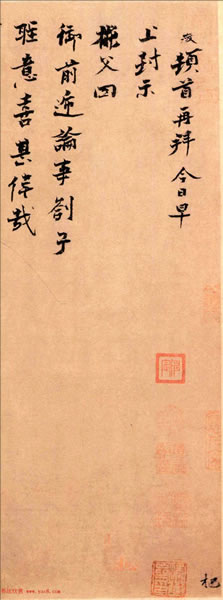 頓首再拜今日早
上封示
父回
御前論事劄子
聖意喜甚偉哉
杞